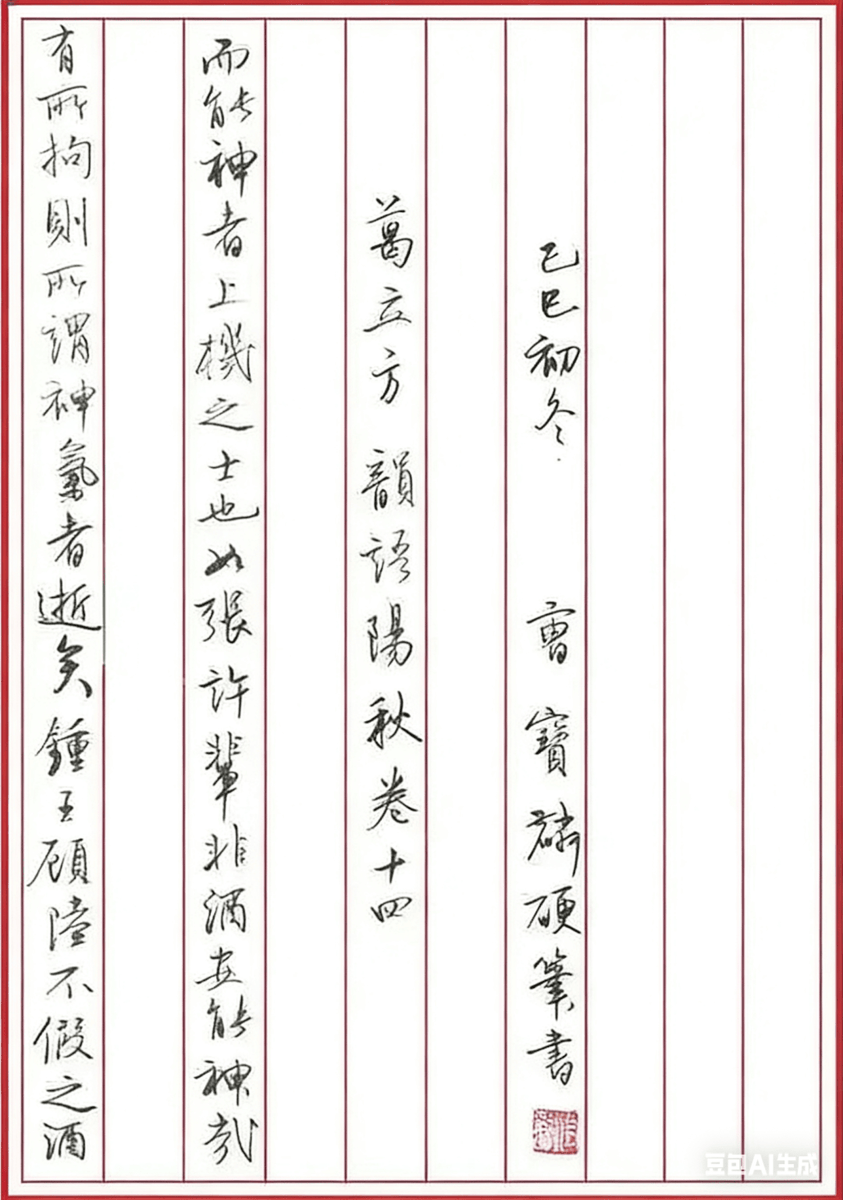 有所拘則所謂神氣者逝矣鍾王顧陸不假之酒
而能神者上機之士也如張許輩非酒安能神哉
葛立方 韻語陽秋卷十四
己巳初冬 曹寶麟硬筆書
豆包AI生成